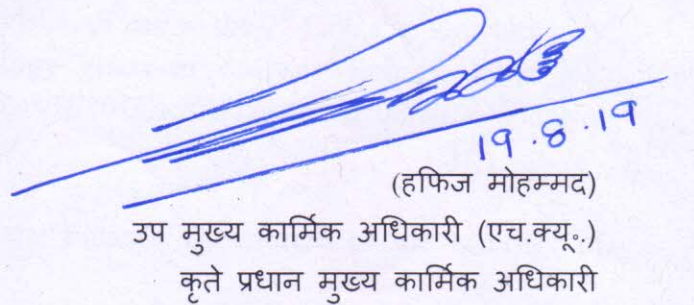 19.8.19
(हफिज मोहम्मद)
उप मुख्य कार्मिक अधिकारी (एच.क्यू..)
कृते प्रधान मुख्य कार्मिक अधिकारी